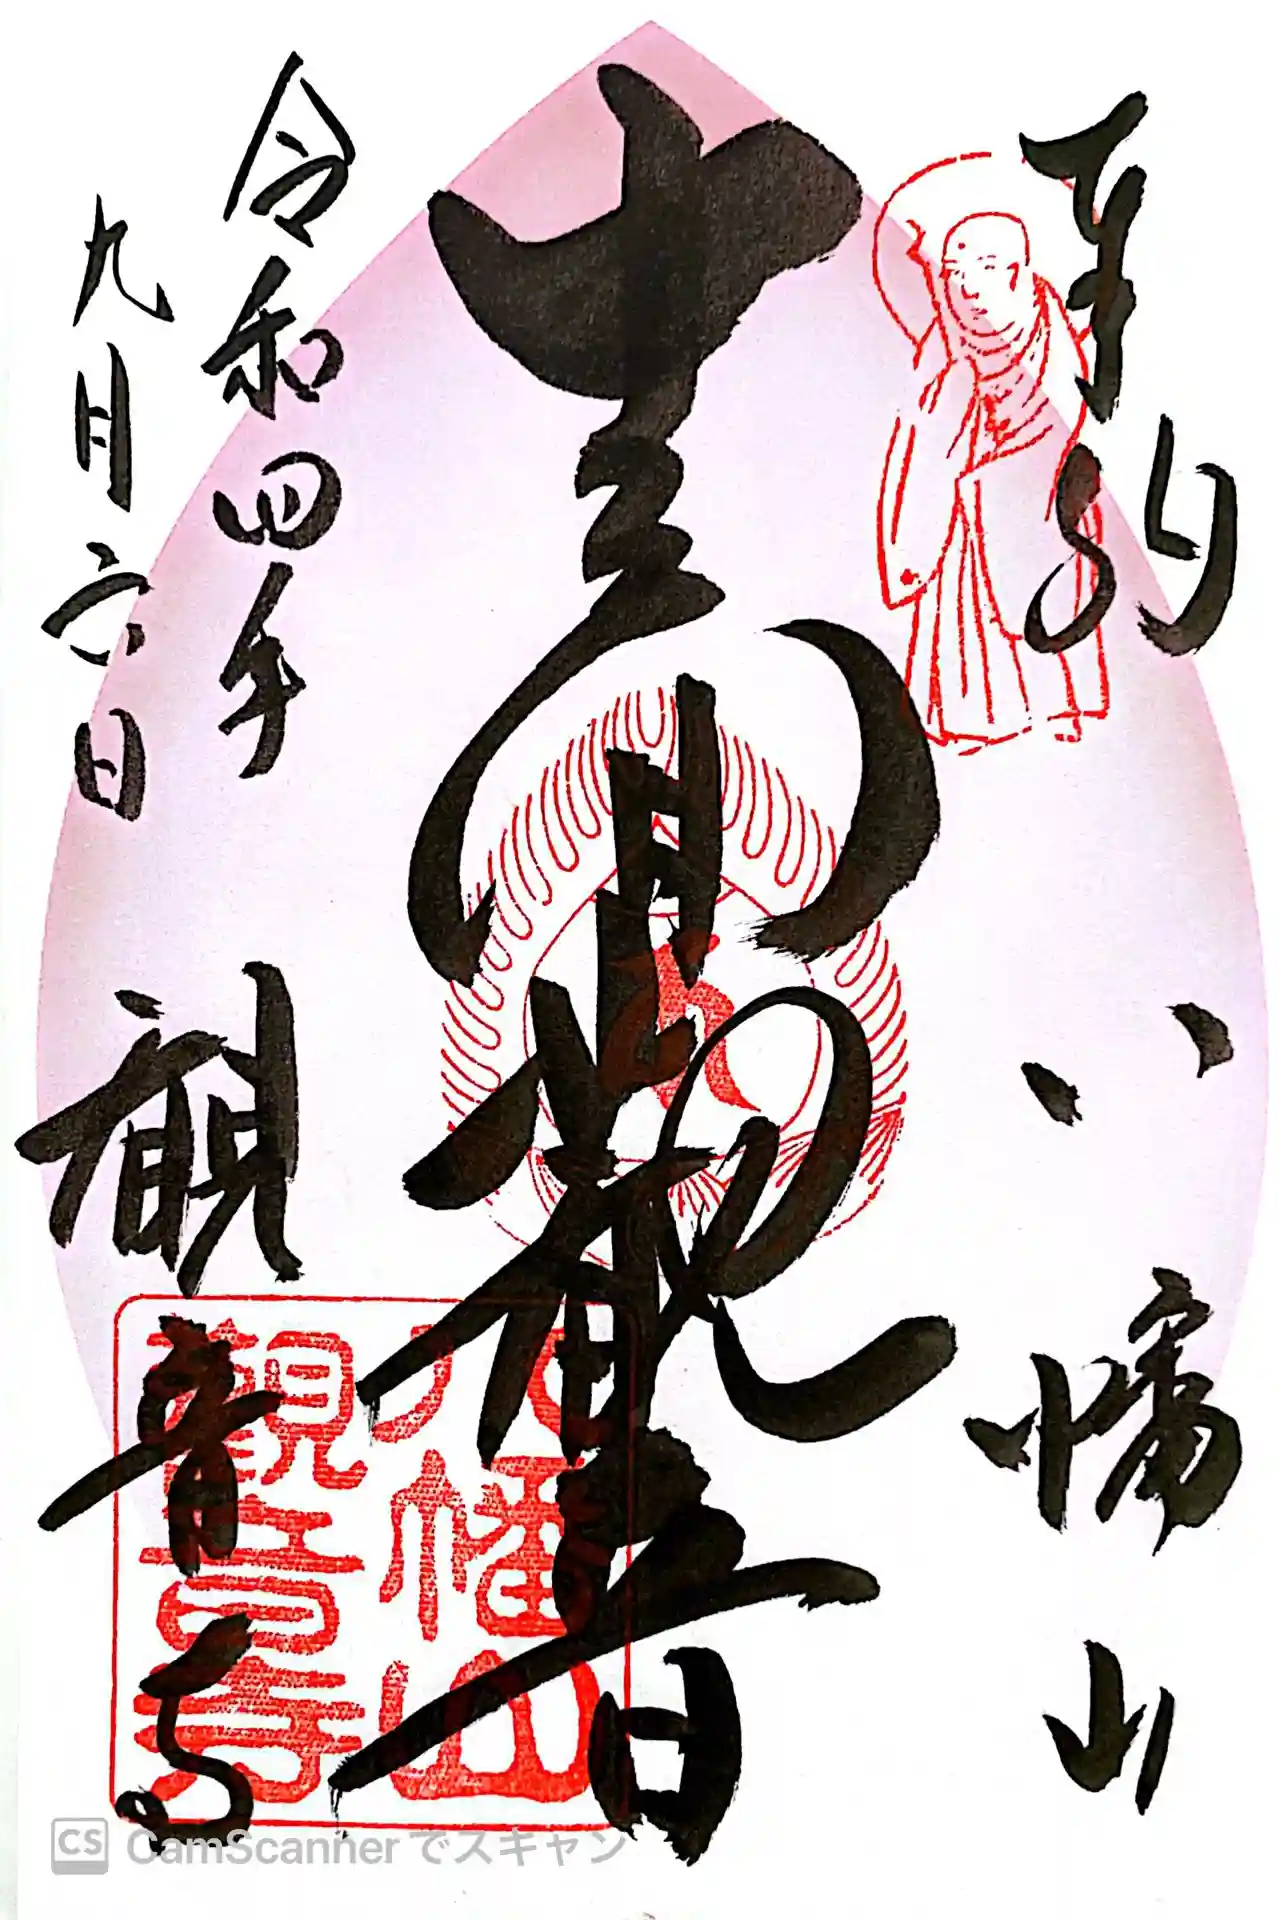 奉納
八幡山
十一面観音
令和四年
九月六日
観音寺
八幡山
観音寺
CS CamScannerでスキャン